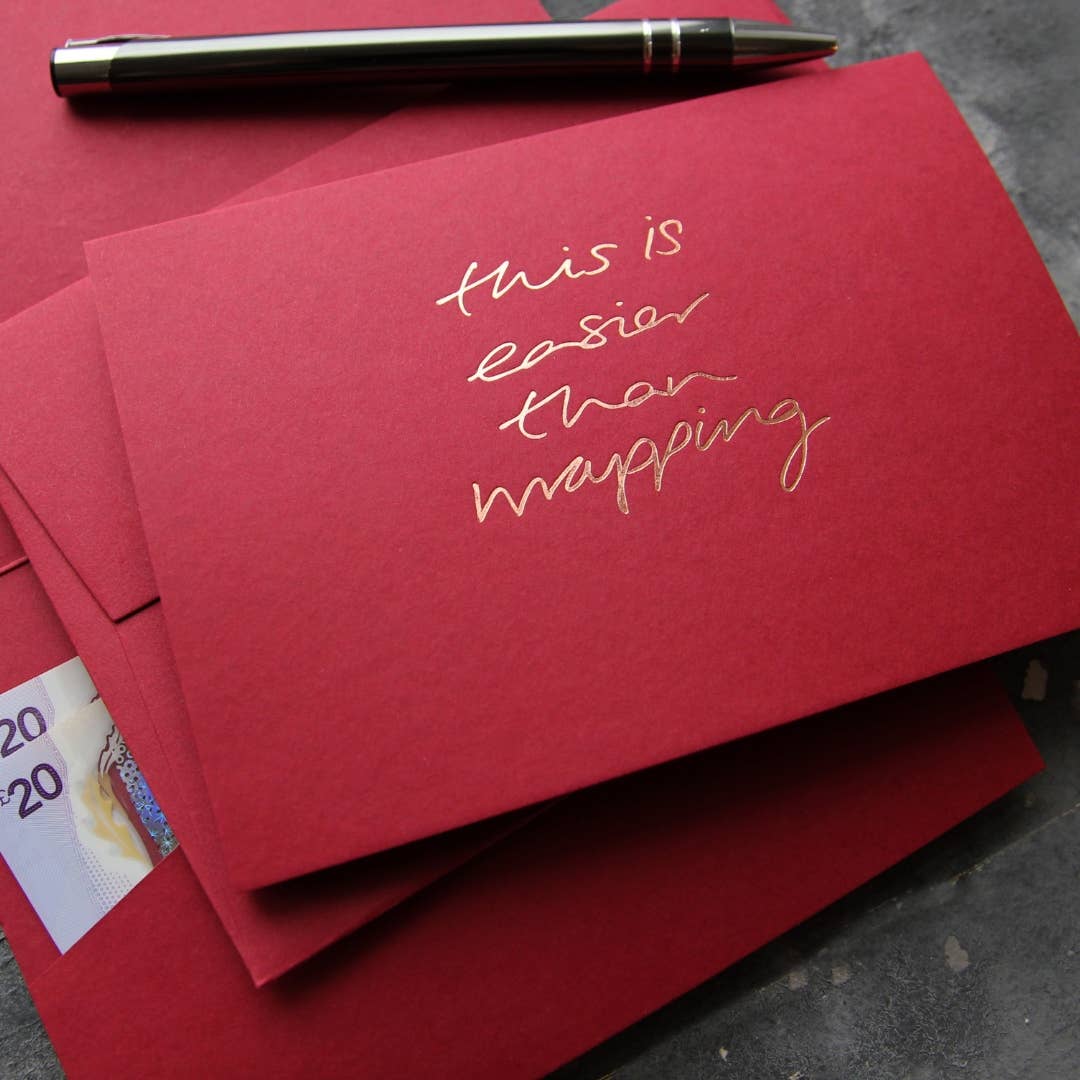 this is
easier
than
wrapping
20
£20